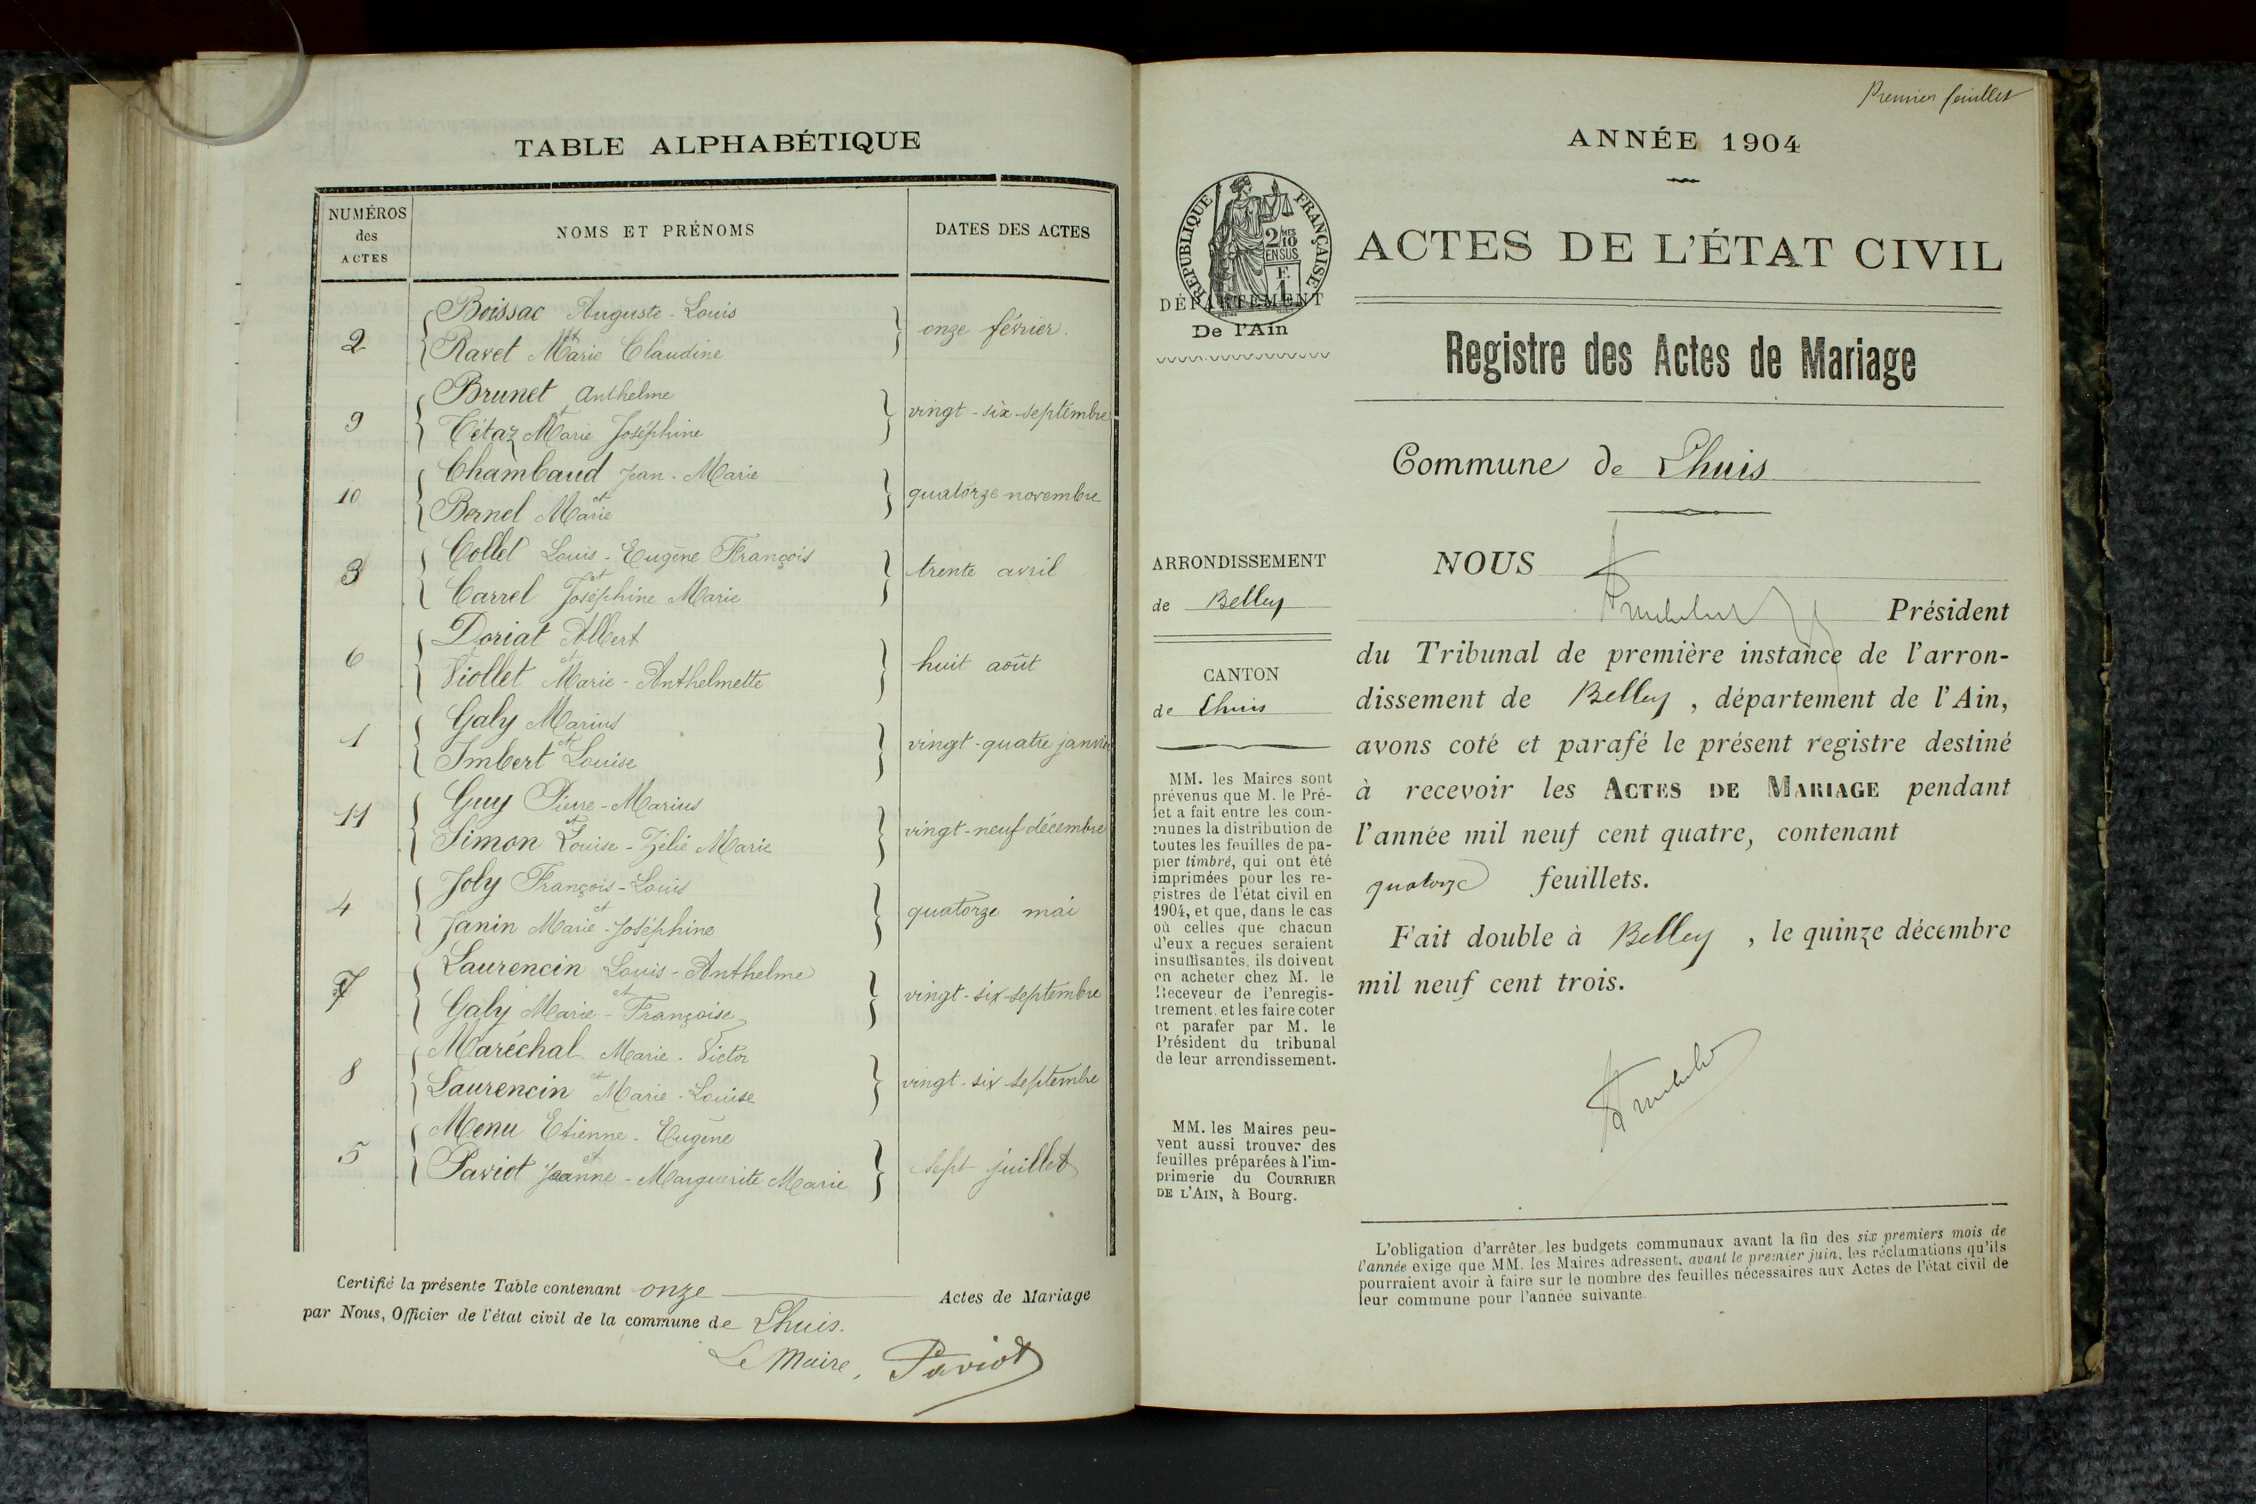 TABLE ALPHABÉTIQUE
NUMÉROS
des
ACTES
NOMS ET PRÉNOMS
DATES DES ACTES
2
Boissac Auguste-Louis
et
Ravet Marie Claudine
onze février.
9
Brunet Anthelme
et
Tétaz Marie Joséphine
vingt-six-septembre
10
Chambaud Jean-Marie
et
Bernel Marie
quatorze novembre
3
Collet Louis-Eugène François
et
Carrel Joséphine Marie
trente avril
6
Doriat Albert
et
Viollet Marie-Anthelmette
huit août
1
Galy Marius
et
Imbert Louise
vingt-quatre janvier
11
Guy Pierre-Marius
et
Simon Louise-Zélie Marie
vingt-neuf décembre
4
Joly François-Louis
et
Janin Marie-Joséphine
quatorze mai
7
Laurencin Louis-Anthelme
et
Galy Marie-Françoise
vingt-six-septembre
8
Maréchal Marie-Victor
et
Laurencin Marie-Louise
vingt-six septembre
5
Menu Etienne-Eugène
et
Paviot Jeanne-Marguerite Marie
sept juillet
Certifié la présente Table contenant onze Actes de Mariage
par Nous, Officier de l'état civil de la commune de Lhuis.
Le Maire, Paviot
Premier feuillet
ANNÉE 1904
RÉPUBLIQUE FRANÇAISE
2/10 MES
EN SUS
F.
1
DÉPARTEMENT
De l'Ain
ARRONDISSEMENT
de Belley
CANTON
de Lhuis
MM. les Maires sont
prévenus que M. le Pré-
fet a fait entre les com-
munes la distribution de
toutes les feuilles de pa-
pier timbré, qui ont été
imprimées pour les re-
gistres de l'état civil en
1904, et que, dans le cas
où celles que chacun
d'eux a reçues seraient
insuffisantes, ils doivent
en acheter chez M. le
Receveur de l'enregis-
trement, et les faire coter
et parafer par M. le
Président du tribunal
de leur arrondissement.
MM. les Maires peu-
vent aussi trouver des
feuilles préparées à l'im-
primerie du COURRIER
DE L'AIN, à Bourg.
ACTES DE L'ÉTAT CIVIL
Registre des Actes de Mariage
Commune de Lhuis
NOUS
Président
du Tribunal de première instance de l'arron-
dissement de Belley, département de l'Ain,
avons coté et parafé le présent registre destiné
à recevoir les ACTES DE MARIAGE pendant
l'année mil neuf cent quatre, contenant
quatorze feuillets.
Fait double à Belley, le quinze décembre
mil neuf cent trois.
L'obligation d'arrêter les budgets communaux avant la fin des six premiers mois de
l'année exige que MM. les Maires adressent, avant le premier juin, les réclamations qu'ils
pourraient avoir à faire sur le nombre des feuilles nécessaires aux Actes de l'état civil de
leur commune pour l'année suivante